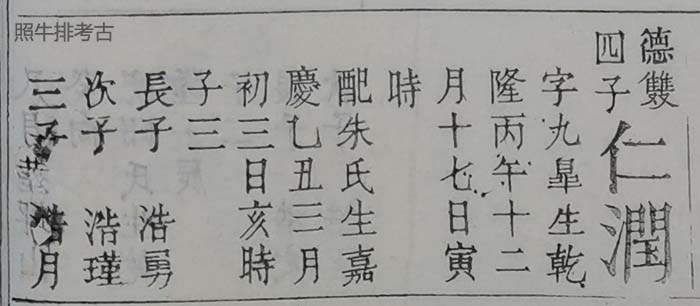 照牛排考古
德雙
四子
仁潤
字九臯生乾
隆丙午十二
月十七日寅
時
配朱氏生嘉
慶乙丑三月
初三日亥時
子三
長子 浩勇
次子 浩瑾
三子 浩月